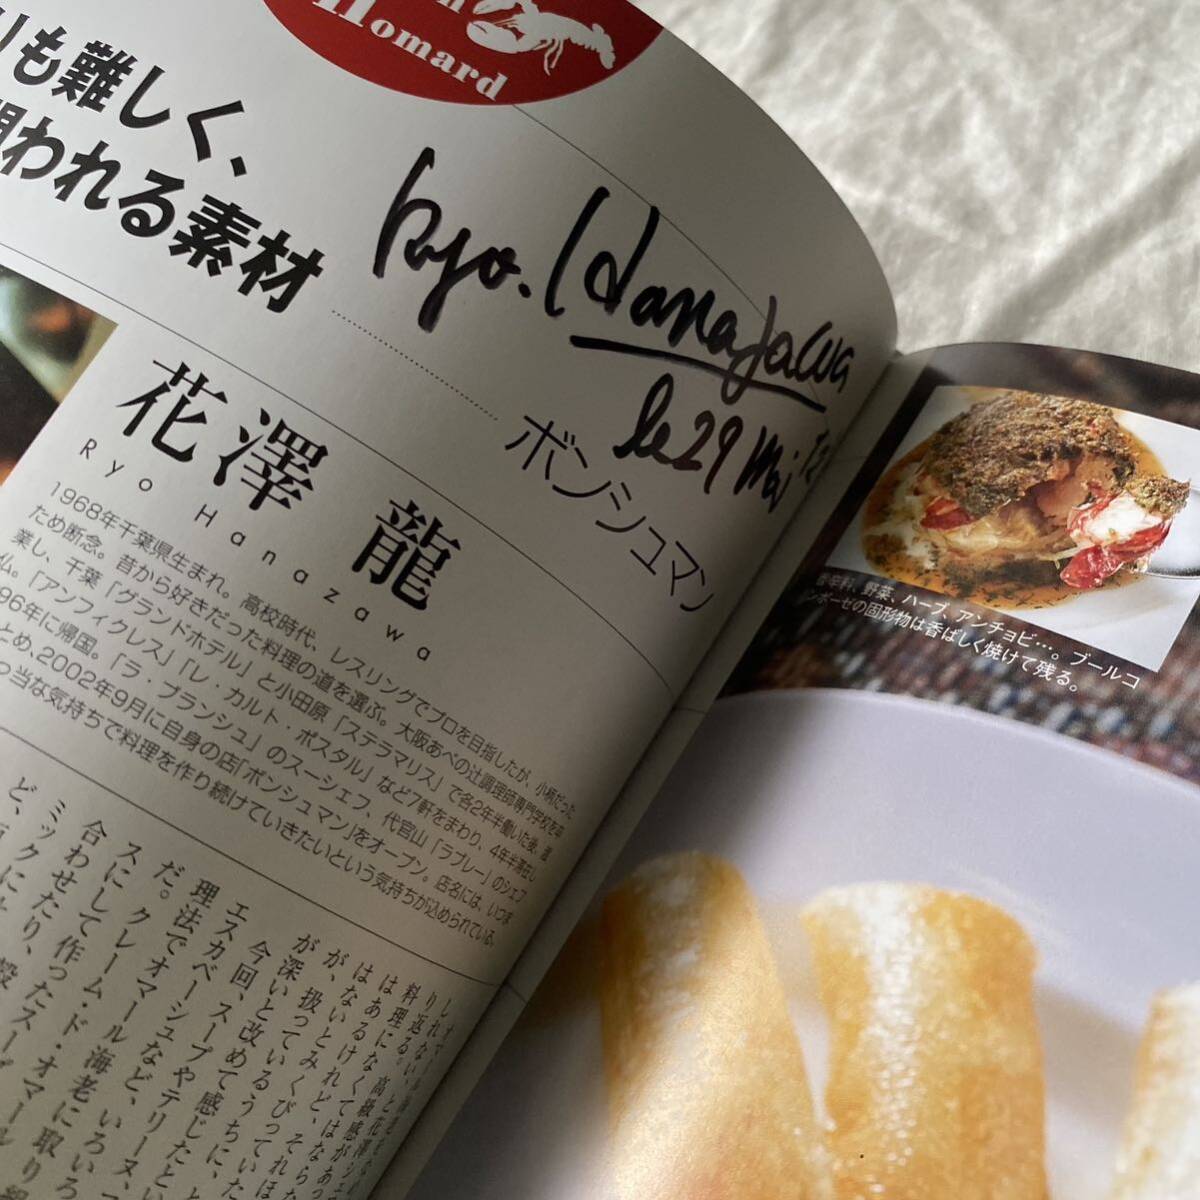 Homard
りも難しく、
われる素材
Ryo. Hanazawa
le 29 Mai
ボンシュマン
花澤 龍
Ryo Hanazawa
1968年千葉県生まれ。高校時代、レスリングでプロを目指したが、小柄だった
ため断念。昔から好きだった料理の道を選ぶ。大阪あべの辻調理師専門学校を卒
業し、千葉「グランドホテル」と小田原「ステラマリス」で各2年半働いた後、渡
仏。「アンフィクレス」「レ・カルト・ポスタル」など7軒をまわり、4年半滞在し
96年に帰国。「ラ・ブランシュ」のスーシェフ、代官山「ラブレー」のシェフ
とめ、2002年9月に自身の店「ボンシュマン」をオープン。店名には、いつま
っ当な気持ちで料理を作り続けていきたいという気持ちが込められている。
料理になる。
はあるけれど、
がないとみくびっては
が、扱っているうちに、
が深いと改めて感じた
今回、スープやテリーヌ、
エスカベーシュなど、いろい
理法でオマール海老に取り
だ。クレーム・ド・オマール
スにして作ったスープ
合わせたり、殻
ミックに
ど、
香辛料、野菜、ハーブ、アンチョビ…。ブールコ
ンポーゼの固形物は香ばしく焼けて残る。